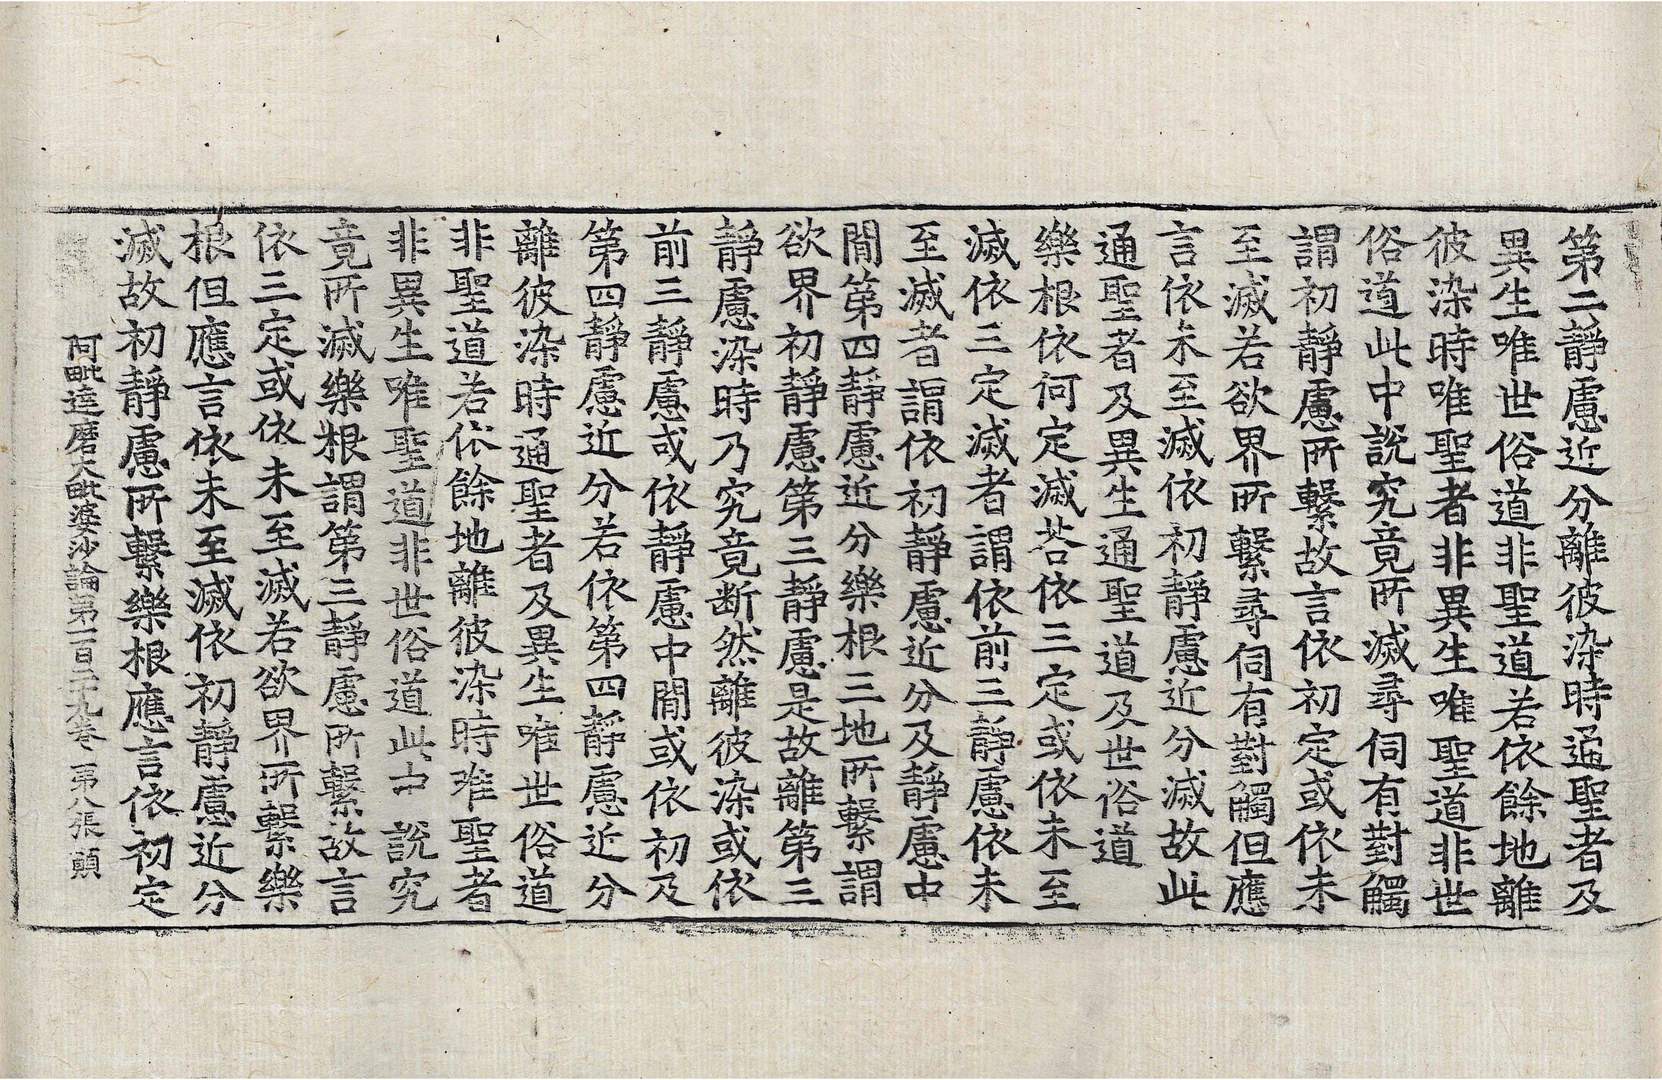 第二靜慮近分離彼染時通聖者及
異生唯世俗道非聖道若依餘地離
彼染時唯聖者非異生唯聖道非世
俗道此中說究竟所滅尋伺有對觸
謂初靜慮所繫故言依初定或依未
至滅若欲界所繫尋伺有對觸但應
言依未至滅依初靜慮近分滅故此
通聖者及異生通聖道及世俗道
樂根依何定滅荅依三定或依未至
滅依三定滅者謂依前三靜慮依未
至滅者謂依初靜慮近分及靜慮中
閒第四靜慮近分樂根三地所繫謂
欲界初靜慮第三靜慮是故離第三
靜慮染時乃究竟断然離彼染或依
前三靜慮或依靜慮中閒或依初及
第四靜慮近分若依第四靜慮近分
離彼染時通聖者及異生唯世俗道
非聖道若依餘地離彼染時唯聖者
非異生唯聖道非世俗道此中說究
竟所滅樂根謂第三靜慮所繫故言
依三定或依未至滅若欲界所繫樂
根但應言依未至滅依初靜慮近分
滅故初靜慮所繫樂根應言依初定
阿毗達磨大毗婆沙論第一百三十九卷 第八張 顗